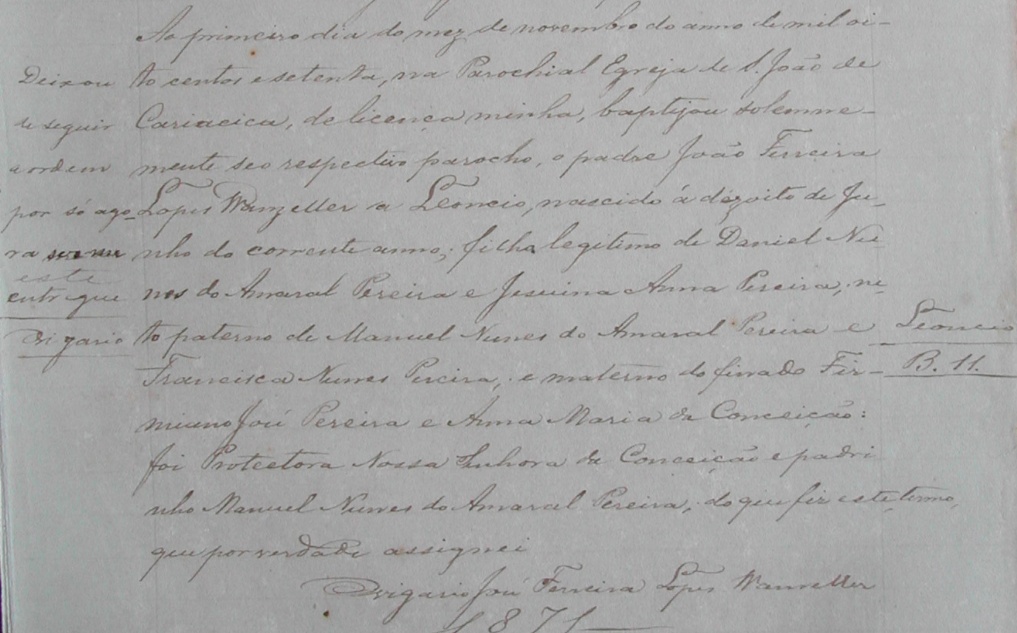 Ao primeiro dia do mez de novembro do anno de mil oi-
to centos e setenta, na Parochial Egreja de S. João de
Cariacica, de licença minha, baptizou solemne-
mente seo respectivo parocho, o padre João Ferreira
Lopes Wanzeller a Leoncio, nascido á dezoito de Ju-
nho do corrente anno; filho legitimo de Daniel Nu-
nes do Amaral Pereira e Jesuina Anna Pereira; ne-
to paterno de Manuel Nunes do Amaral Pereira e
Francisca Nunes Pereira, e materno do finado Fir-
mieno José Pereira e Anna Maria da Conceição:
foi Protectora Nossa Senhora da Conceição e padri
nho Manuel Nunes do Amaral Pereira; do que fiz este termo,
que por verdade assignei
Vigario José Ferreira Lopes Wanzeller
1871
Deixou
de seguir
a ordem
por só ago-
ra
este
entregue
Vigario
Leoncio
B. 11.